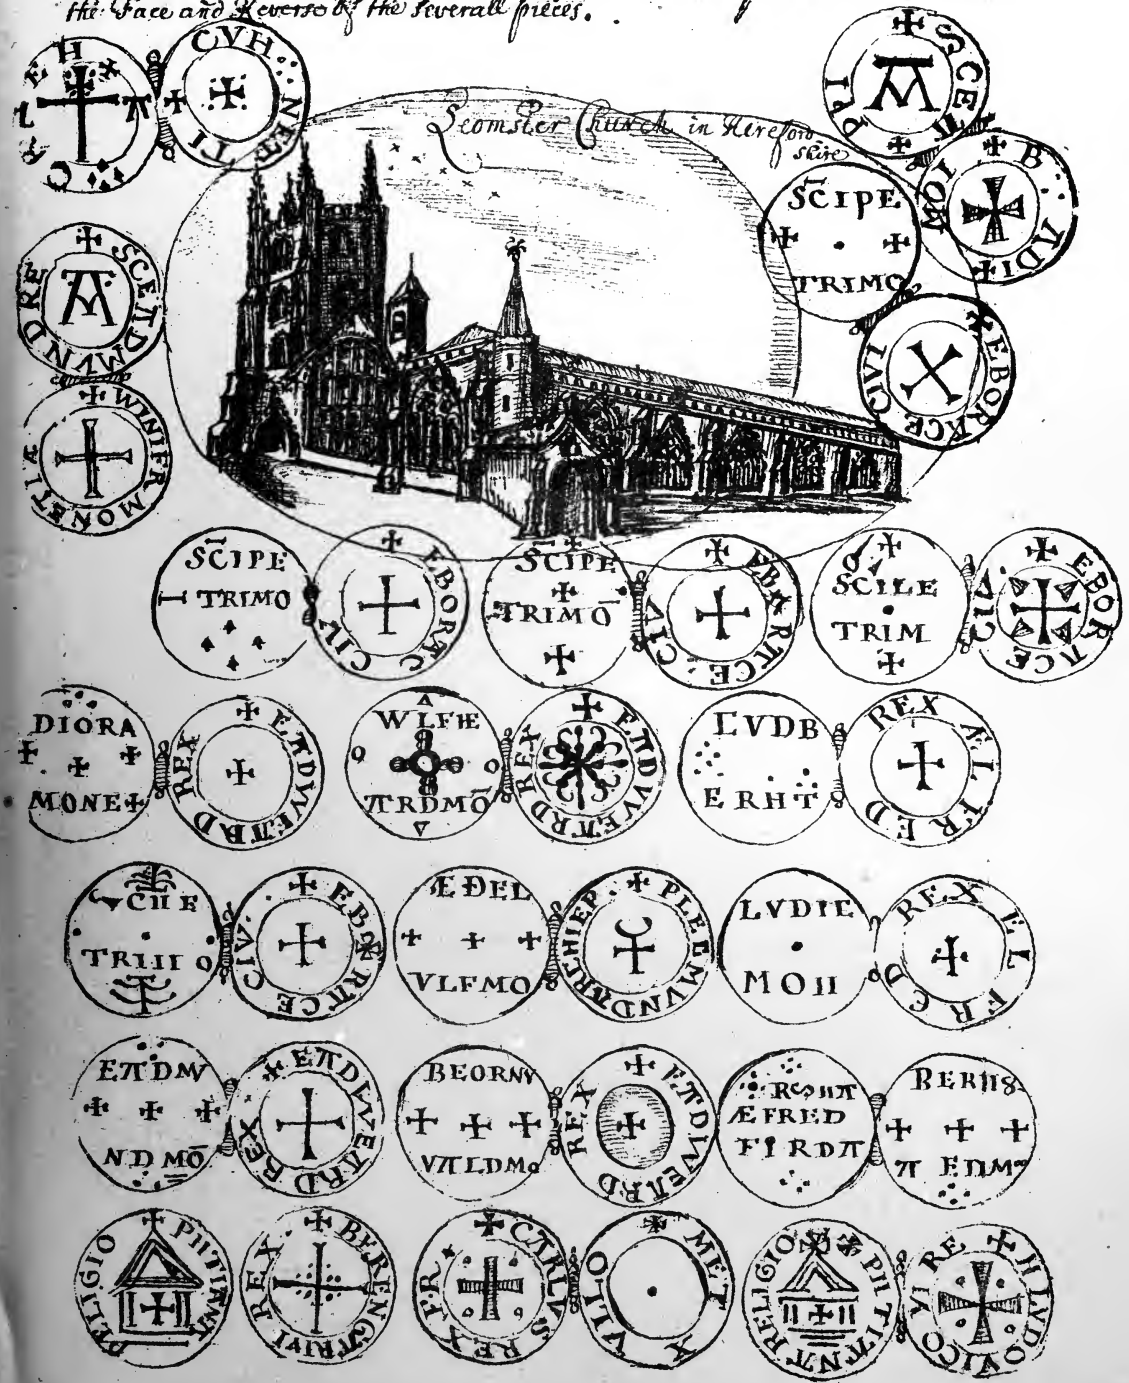 the Face and Reverse of the severall pieces.
Leomster Church in Hereford
shire
CVH··NETTI
+SCEA
PI
+B··ADI+
MON
SC̄IPE
TRIMO
+EBORACE CIVI
+SCEADMVNDRE
+WINIFR MONETIÆ
SC̄IPE
TRIMO
+EBORAC CIV
SC̄IPE
TRIMŌ
+EB RACE·CIV
SCILE
TRIM
+EBORACE CIV
DIORA
MONE+
+EADVVEARD REX
WLFHE
ARDMŌ
+EADVVEARD REX
LVDB
ERHT
ÆLFRED REX
CIIE
TRIII
+EB RACE CIV
ÆÐEL
VLFMO
+PLEEMVNDARCHIEP
LVDIE
MOII
ELFRED REX
EADMV
NDMŌ
+EADVVEARD REX
BEORNV
VALDMo
+EADVVEARD REX
ÆFRED
FIRDA
BERII8
A EDM
+PIITIANT RELIGIO
+BERENGTRIVI REX
+CARLVS REX FR
+METX VLIO
+PIITIANT RELIGIO
+HLVDOVICO VI RE